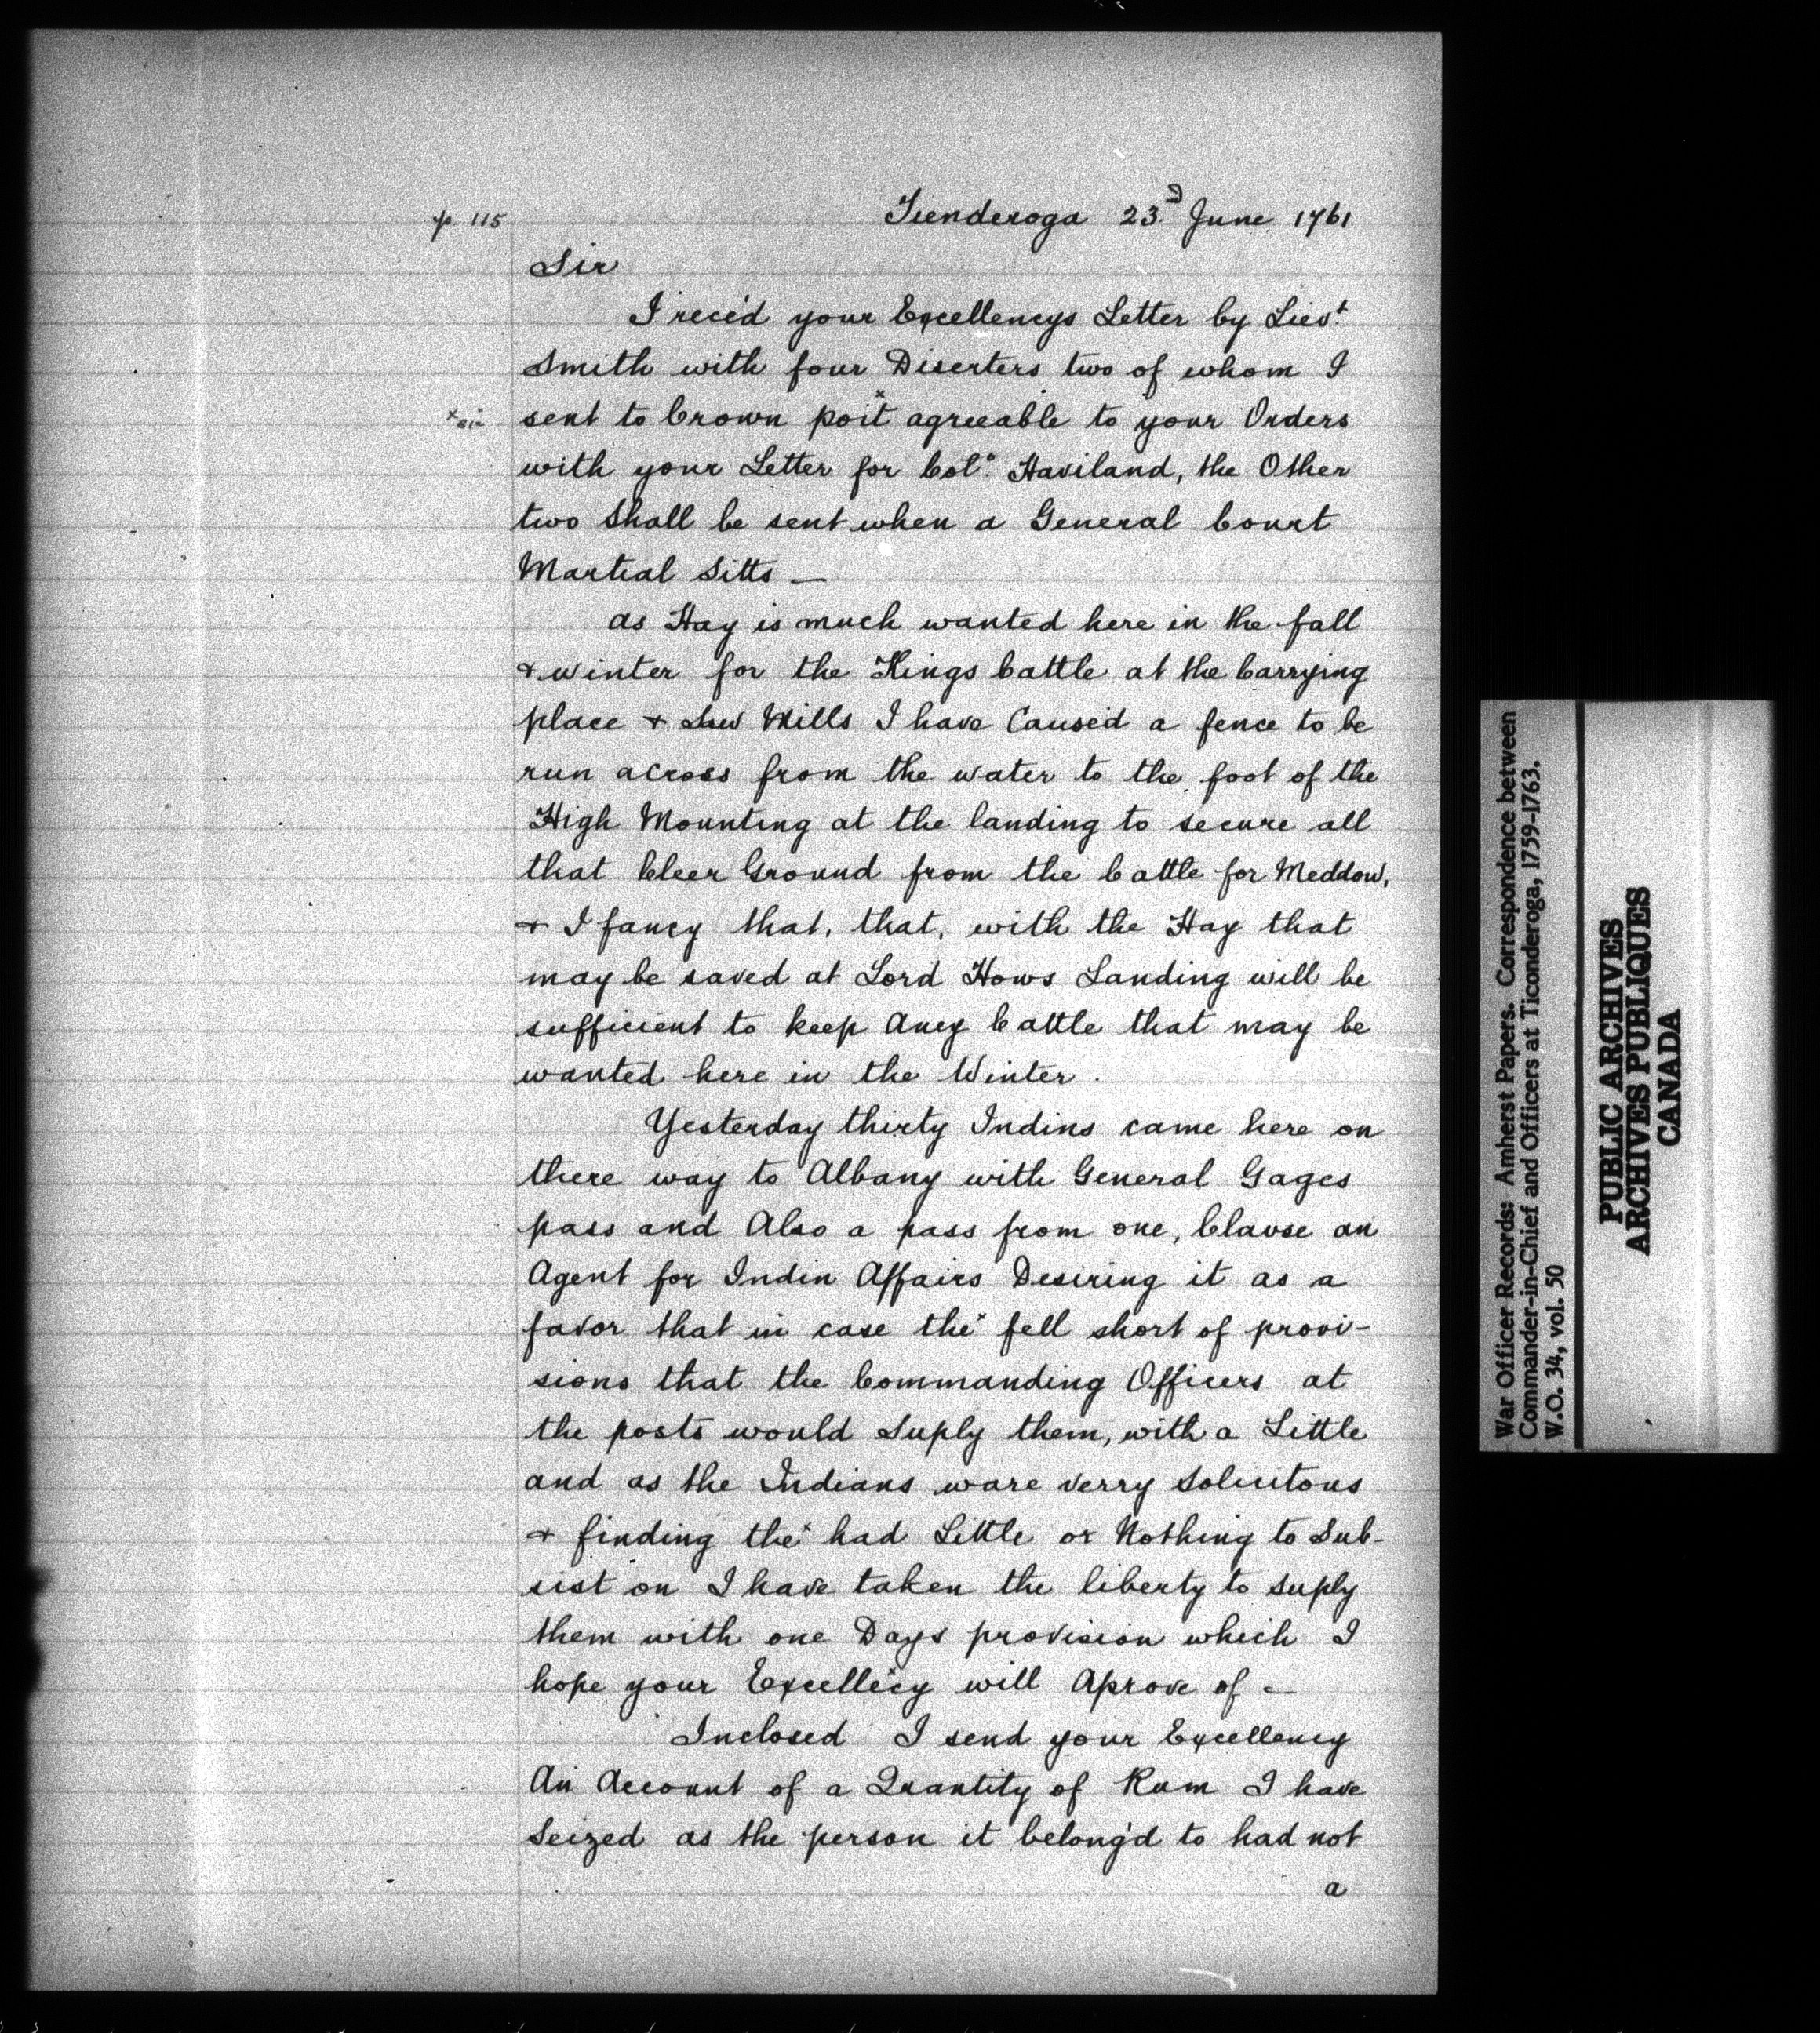 p. 115
Tienderoga 23.d June 1761
Sir
I rece'd your Excellencys Letter by Lieut
Smith with four Diserters two of whom I
x sic
sent to Crown poit x agreeable to your Orders
with your Letter for Colo. Haviland, the Other
two Shall be sent when a General Court
Martial Sitts —
as Hay is much wanted here in the fall
& winter for the Kings Cattle at the Carrying
place & Saw Mills I have Caused a fence to be
run across from the water to the foot of the
High Mounting at the landing to secure all
that Cleer Ground from the Cattle for Meddow,
& I fancy that, that, with the Hay that
may be saved at Lord Hows Landing will be
sufficient to keep Aney Cattle that may be
wanted here in the Winter.
Yesterday thirty Indins came here on
there way to Albany with General Gages
pass and Also a pass from one, Clause an
Agent for Indin Affairs Desiring it as a
favor that in case the x fell short of provi-
sions that the Commanding Officers at
the posts would Suply them, with a Little
and as the Indians ware verry Solicitous
& finding the x had Little or Nothing to Sub-
sist on I have taken the liberty to Suply
them with one Days provision which I
hope your Excellecy will Aprove of —
Inclosed I send your Excellency
An Account of a Quantity of Rum I have
Seized as the person it belong'd to had not
a
War Officer Records: Amherst Papers. Correspondence between
Commander-in-Chief and Officers at Ticonderoga, 1759-1763.
W.O. 34, vol. 50
PUBLIC ARCHIVES
ARCHIVES PUBLIQUES
CANADA